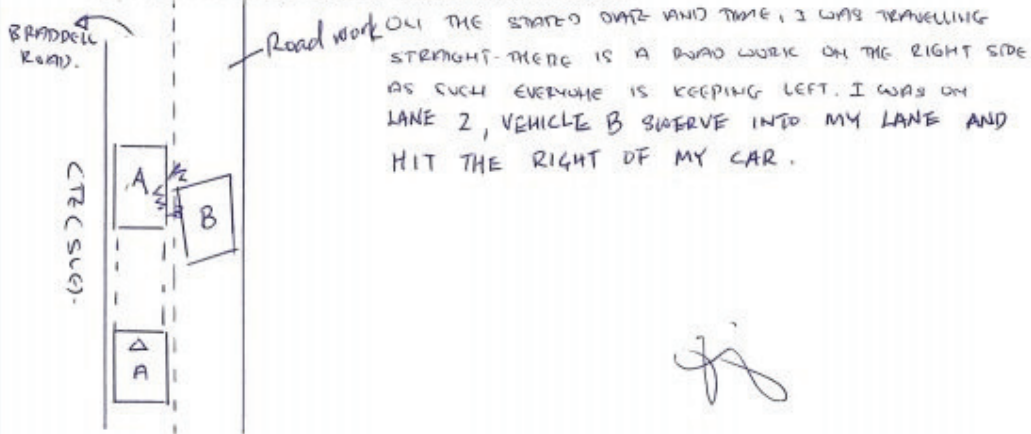 BRADDELL
ROAD.
Road work
ON THE STATED DATE AND TIME, I WAS TRAVELLING
STRAIGHT. THERE IS A ROAD WORK ON THE RIGHT SIDE
AS SUCH EVERYONE IS KEEPING LEFT. I WAS ON
LANE 2, VEHICLE B SWERVE INTO MY LANE AND
HIT THE RIGHT OF MY CAR.
A
B
CTE (SLE).
A